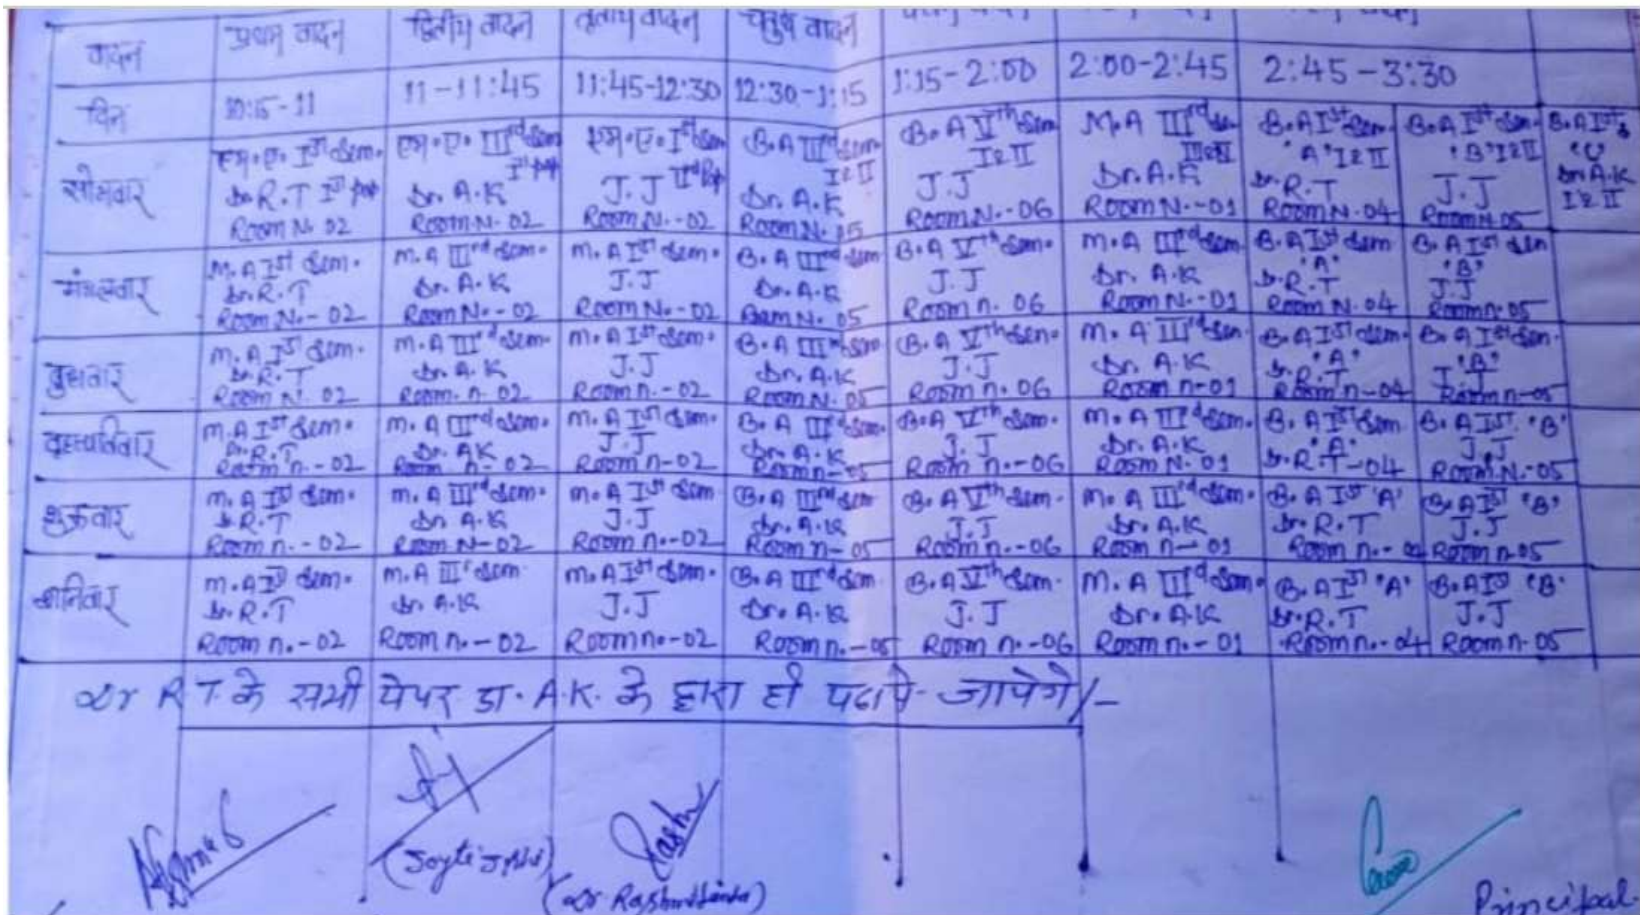 वादन प्रथम वादन द्वितीय वादन तृतीय वादन चतुर्थ वादन
दिन 10:15-11 11-11:45 11:45-12:30 12:30-1:15 1:15-2:00 2:00-2:45 2:45-3:30
सोमवार
एम.ए. Ist Sem.
Dr. R.T Ist
Room N. 02
एम.ए. IIIrd Sem
Dr. A.K
Room N.-02
एम.ए. Ist Sem
J.J IInd
Room N.-02
B.A IIIrd Sem
I & II
Dr. A.K
Room N. 05
B.A Vth Sem
I & II
J.J
Room N.-06
M.A IIIrd
Dr. A.K
Room N.-01
B.A Ist Sem.
'A' I & II
Dr. R.T
Room N. 04
B.A Ist Sem.
'B' I & II
J.J
Room N. 05
B.A Ist
'C'
Dr. A.K
I & II
मंगलवार
M.A Ist Sem.
Dr. R.T
Room N.-02
M.A IIIrd Sem.
Dr. A.K
Room N.-02
M.A Ist Sem.
J.J
Room N.-02
B.A IIIrd Sem
Dr. A.K
N. 05
B.A Vth Sem.
J.J
Room n. 06
M.A IIIrd Sem
Dr. A.K
Room N.-01
B.A Ist Sem
'A'
Dr. R.T
Room N. 04
B.A Ist Sem
'B'
J.J
Room n. 05
बुधवार
M.A Ist Sem.
Dr. R.T
Room N. 02
M.A IIIrd Sem.
Dr. A.K
Room n. 02
M.A Ist Sem.
J.J
Room n.-02
B.A IIIrd Sem
Dr. A.K
Room N. 05
B.A Vth Sem.
J.J
Room n. 06
M.A IIIrd Sem.
Dr. A.K
Room n-01
B.A Ist Sem.
'A'
Dr. R.T
Room n-04
B.A Ist Sem.
'B'
J.J
Room n-05
M.A Ist Sem.
Dr. R.T
Room n.-02
M.A IIIrd Sem.
Dr. AK
Room n-02
M.A Ist Sem.
J.J
Room n-02
B.A IIIrd Sem.
Dr. A.K
Room n-05
B.A Vth Sem.
J.J
Room n.-06
M.A IIIrd Sem.
Dr. A.K
Room N. 01
B.A Ist Sem
'A'
Dr. R.T-04
B.A Ist 'B'
J.J
Room N.-05
शुक्रवार
M.A Ist Sem.
Dr. R.T
Room n.-02
M.A IIIrd Sem.
Dr A.K
Room N-02
M.A Ist Sem
J.J
Room n.-02
B.A IIIrd Sem
Dr. A.K
Room n-05
B.A Vth Sem.
J.J
Room n.-06
M.A IIIrd Sem.
Dr. A.K
Room n-01
B.A Ist 'A'
Dr. R.T
Room n.- 04
B.A Ist 'B'
J.J
Room n-05
शनिवार
M.A Ist Sem.
Dr. R.T
Room n.-02
M.A IIIrd Sem.
Dr. A.K
Room n.-02
M.A Ist Sem.
J.J
Room no-02
B.A IIIrd Sem.
Dr. A.K
Room n.-05
B.A Vth Sem.
J.J
Room n.-06
M.A IIIrd Sem.
Dr. A.K
Room n.-01
B.A Ist 'A'
Dr. R.T
Room n.-04
B.A Ist 'B'
J.J
Room n-05
Dr R.T. के सभी पेपर डा. A.K. के द्वारा ही पढाये जायेंगे/-
Principal